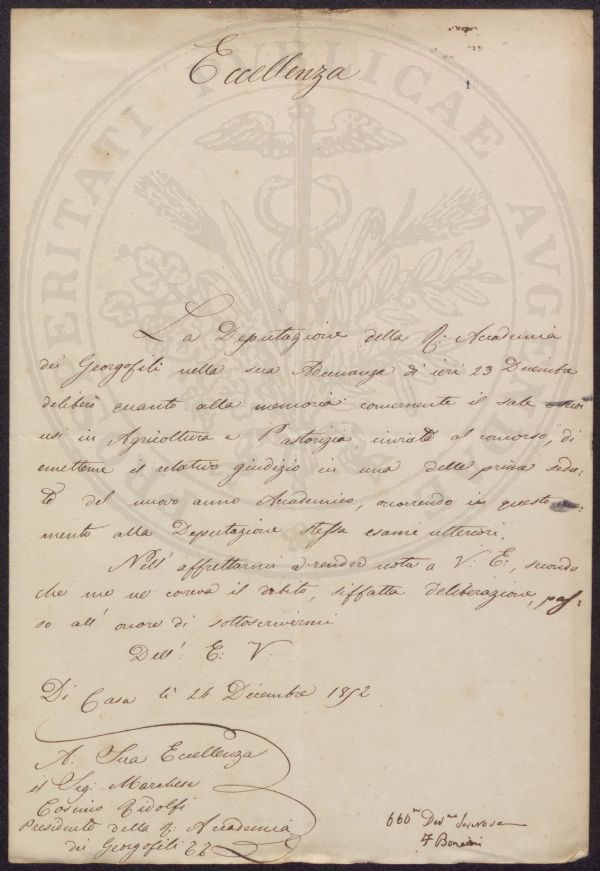 1
Eccellenza
La Deputazione della R: Accademia
dei Georgofili nella sua Adunanza di ieri 23 Decembre
deliberò quanto alla memoria concernente il sale e suoi
usi in Agricoltura e Pastorizia, inviata al concorso, di
emetterne il relativo giudizio in una delle prime sedu:
te del nuovo anno Accademico, occorrendo in questo mo:
mento alla Deputazione stessa esami ulteriori.
Nell' affrettarmi a render nota a V: E:, secondo
che me ne correva il debito, siffatta deliberazione, pas:
so all' onore di sottoscrivermi
Dell': E: V.
Di Casa lì 24 Decembre 1852
A. Sua Eccellenza
il Sig: Marchese
Cosimo Ridolfi
Presidente della R: Accademia
dei Georgofili
F Bonaini